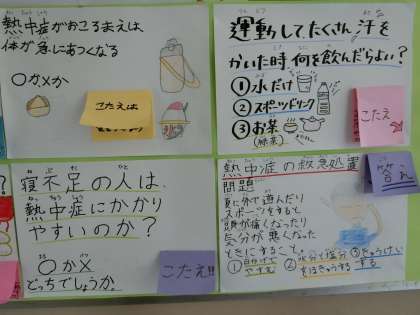 熱中症がおこるまえは
体が急にあつくなる
○か×か
こたえは
運動して、たくさん汗を
かいた時何を飲んだらよい?
①水だけ
②スポーツドリンク
③お茶
(緑茶)
こたえ
寝不足の人は、
熱中症にかかり
やすいのか?
○か×
どっちでしょうか。
こたえ!!
熱中症の救急処置
答え
問題
夏に外で遊んだり
スポーツをすると
頭が痛くなったり
気分が悪くなった
ときにすること。